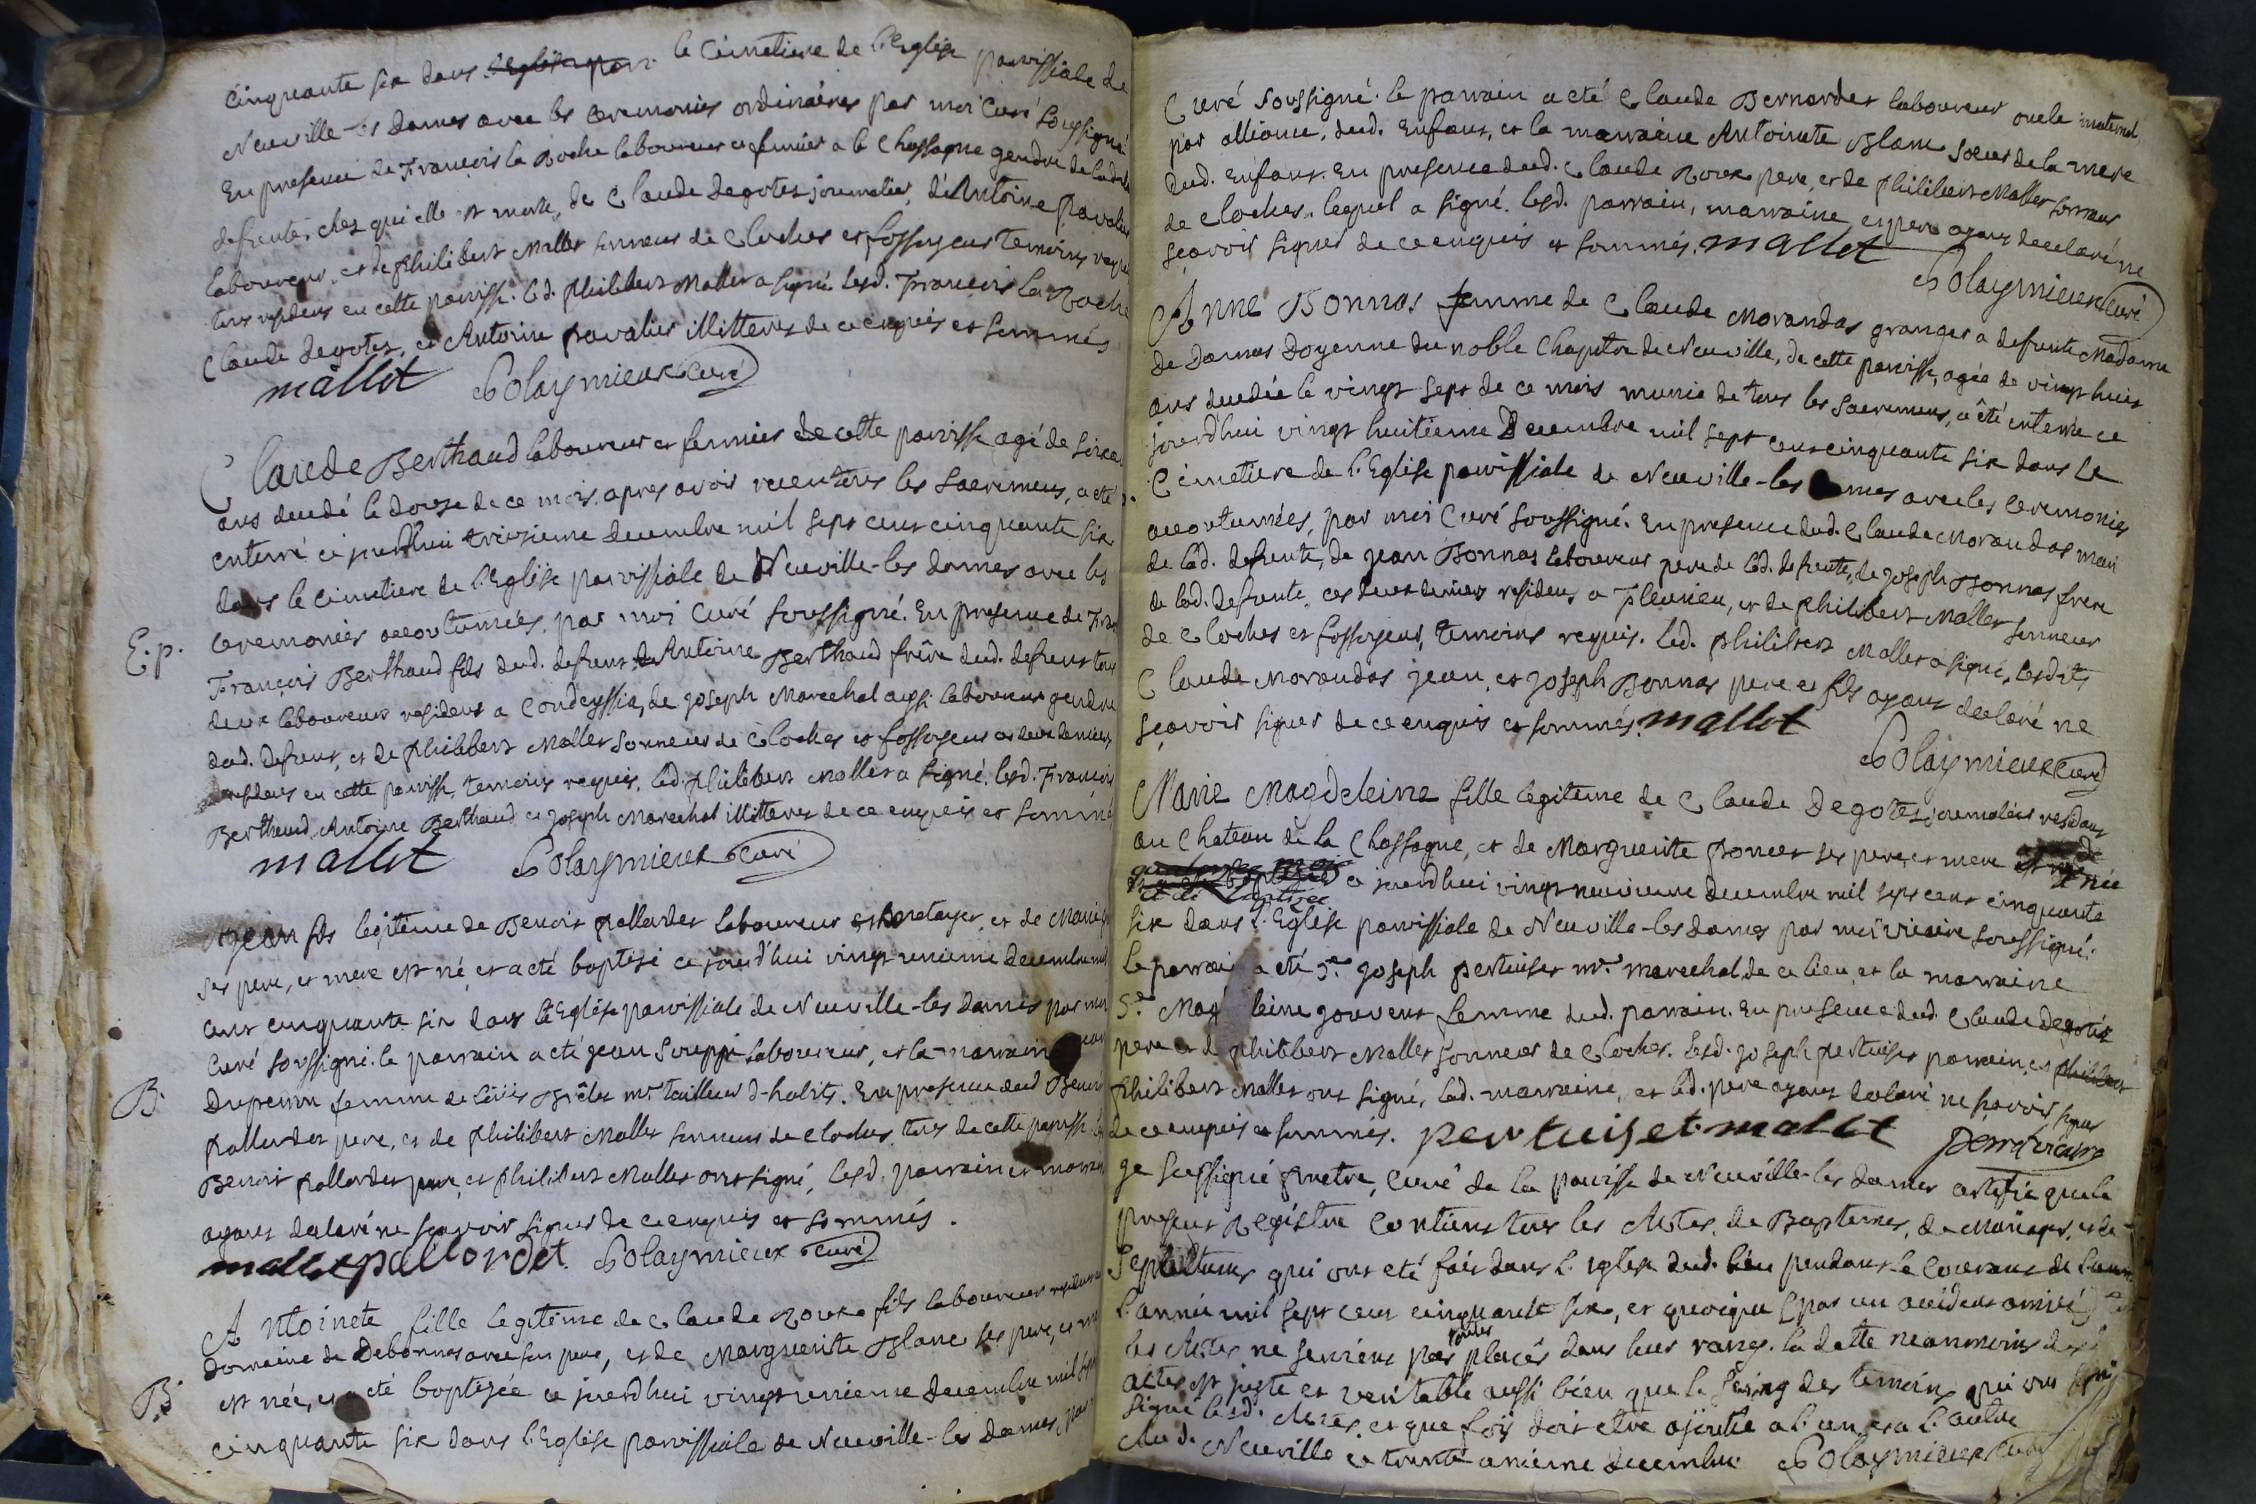 cinquante six dans l'Eglise par le Cimetiere de l'Eglise parroissiale de
Neuville-les Dames avec les ceremonies ordinaires par moi Curé soussigné
En presence de François la Roche laboureur et fermier a la Chassagne gendre de lad.
defunte, chez qui elle est morte, de Claude Degotes journalier, d'Antoine Pavalier
laboureur, et de Philibert Mallet sonneur de Cloches et fossoyeur temoins requis
tous residens en cette parroisse. led. Philibert Mallet a signé lesd. François La Roche
Claude Degotes, et Antoine Pavalier illitteres de ce enquis et sommés
mallet Polaymieux Curé
Claude Berthaud laboureur et fermier de cette parroisse agé de soixante
ans decedé le douze de ce mois, apres avoir receu tous les Sacremens, a eté
enterré ce jourdhui treizieme decembre mil sept cens cinquante six
dans le cimetiere de l'Eglise parroissiale de Neuville-les dames avec les
E.p.
Ceremonies accoutumées, par moi Curé soussigné. En presence de
François Berthaud fils dud. defunt, de Antoine Berthaud frêre dud. defunt tous
deux laboureurs residens a Condeyssia, de Joseph Marechal aussi laboureur gendre
dud. defunt, et de Philibert Mallet sonneur de Cloches et fossoyeur ces deux derniers
residens en cette parroisse, temoins requis, led. Philibert Mallet a signé, lesd. François
Berthaud, Antoine Berthaud et Joseph Marechal illitteres de ce enquis et sommés
mallet Polaymieux Curé
Jean fils legitime de Benoit Pallordet laboureur et metayer, et de Marie
ses pere, et mere est né, et a eté baptisé ce jourd'hui vingt unieme decembre mil
cens cinquante six dans l'Eglise parroissiale de Neuville-les dames par moi
Curé soussigné. le parrain a eté jean laboureur, et la marraine
B.
Duperron femme de mr. tailleur d-habits. En presence dud. Benoit
Pallordet pere, et de Philibert Mallet sonneur de cloches, tous de cette parroisse
Benoit Pallordet pere, et Philibert Mallet ont signé, lesd. parrain et marraine
ayant declaré ne sçavoir signer de ce enquis et sommés.
mallet pallordet Polaymieux Curé
Antoinete fille legitime de Claude Roux fils laboureur
Domaine de Debonnas avec son pere, et de Marguerite Blanc ses pere, et
B.
est née, et a eté baptisée ce jourdhui vingt unieme decembre mil sept
cinquante six dans l'Eglise parroissiale de Neuville-les Dames, par
Curé soussigné. le parrain a eté Claude Bernardet laboureur oncle maternel
par alliance, dud. Enfant, et la marraine Antoinete Blanc soeur de la mere
dud. enfant. En presence dud. Claude Roux pere, et de Philibert Mallet sonneur
de Cloches, lequel a signé. lesd. parrain, marraine, et pere ayant declaré ne
sçavoir signer de ce enquis et sommés. mallet
Polaymieux Curé
Anne Bonnas femme de Claude Morandas granger a defunte Madame
de Damas Doyenne du noble Chapitre de Neuville, de cette parroisse, agée de vingt huit
ans decedée le vingt sept de ce mois munie de tous les Sacremens, a êté enterrée ce
jourdhui vingt huitieme Decembre mil sept cens cinquante six dans le
Cimetiere de l'Eglise parroissiale de Neuville-les mes avec les Ceremonies
accoutumées, par moi Curé soussigné. En presence dud. Claude Morandas mari
de lad. defunte, de jean Bonnas laboureur pere de lad. defunte, de joseph Bonnas frere
de lad. defunte, ces deux derniers residens a Fleurieu, et de Philibert Mallet sonneur
de Cloches et fossoyeur, temoins requis. led. Philibert Mallet a signé, lesdits
Claude Morandas jean, et joseph Bonnas pere et fils ayant declaré ne
sçavoir signer de ce enquis et sommés. mallet
Polaymieux Curé
Marie Magdeleine fille legitime de Claude Degotes journalier residant
au Chateau de la Chassagne, et de Marguerite Poncet ses pere, et mere est née
ce jourdhui vingt neuvieme decembre mil sept cens cinquante
six dans l'Eglise parroissiale de Neuville-les dames par moi vicaire soussigné.
le parrain a eté Sr. joseph pertuiset mr. marechal de ce lieu, et la marraine
Magdeleine gouvent femme dud. parrain. En presence dud. Claude Degotes
pere et de Philibert Mallet sonneur de Cloches. lesd. joseph pertuiset parrain, et Philibert
Philibert Mallet ont signé, lad. marraine, et led. pere ayant declaré ne sçavoir signer
de ce enquis et sommés. pertuiset mallet vicaire
je soussigné Pretre, Curé de la parroisse de Neuville-les dames certifie que le
present Registre contient tous les Actes de Baptemes, de Mariages, et de
Sepultures qui ont eté faits dans l'Eglise dud. lieu pendant le courant de l'année
l'année mil sept cens cinquante six, et quoique (par un accident arrivé)
les Actes ne seroient pas toutes placés dans leur rang, la datte neanmoins des
actes est juste et veritable aussi bien que le seing des temoins qui ont signé
signé lesd. Actes, et que foÿ doit etre ajoutée a l'un, et a l'autre
Aud. Neuville ce trente unieme decembre Polaymieux Curé